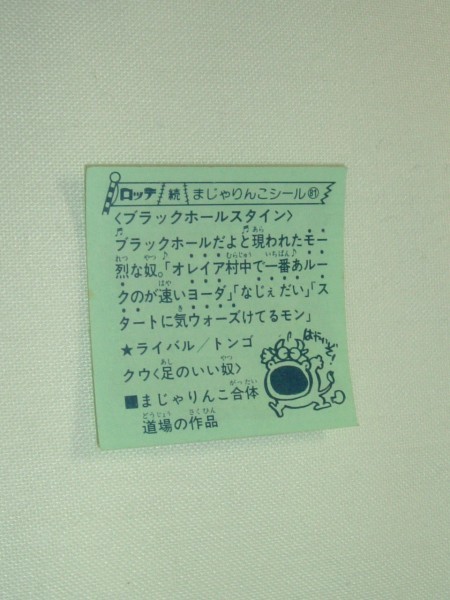 ロッテ 続 まじゃりんこシール 81
〈ブラックホールスタイン〉
ブラックホールだよと現われたモー
烈な奴。「オレイア村中で一番あルー
クのが速いヨーダ」「なじぇだい」「ス
タートに気ウォーズけてるモン」
★ライバル／トンゴ
クウ〈足のいい奴〉
■まじゃりんこ合体
道場の作品
はやいぞ!